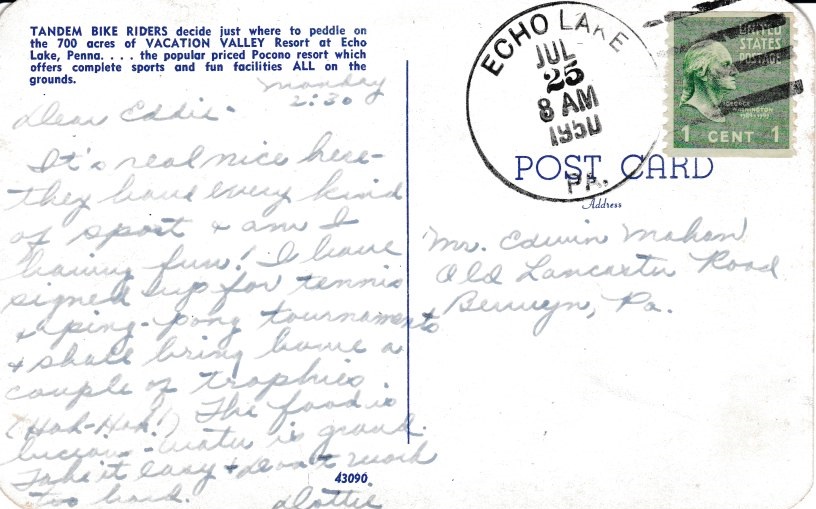 TANDEM BIKE RIDERS decide just where to peddle on
the 700 acres of VACATION VALLEY Resort at Echo
Lake, Penna. . . . the popular priced Pocono resort which
offers complete sports and fun facilities ALL on the
grounds.
Monday
2:30
Dear Eddie -
It's real nice here -
they have every kind
of sport + am I
having fun! I have
signed up for tennis
+ ping-pong tournaments
+ shall bring home a
couple of trophies
(Hah-Hah!) The food is
luscious - water is grand.
Take it easy + don't work
too hard.
Dottie
43090
ECHO LAKE
JUL
25
8 AM
1950
PA.
UNITED
STATES
POSTAGE
GEORGE
WASHINGTON
1 CENT 1
POST CARD
Address
Mr. Edwin Mahan
Old Lancaster Road
Berwyn, Pa.